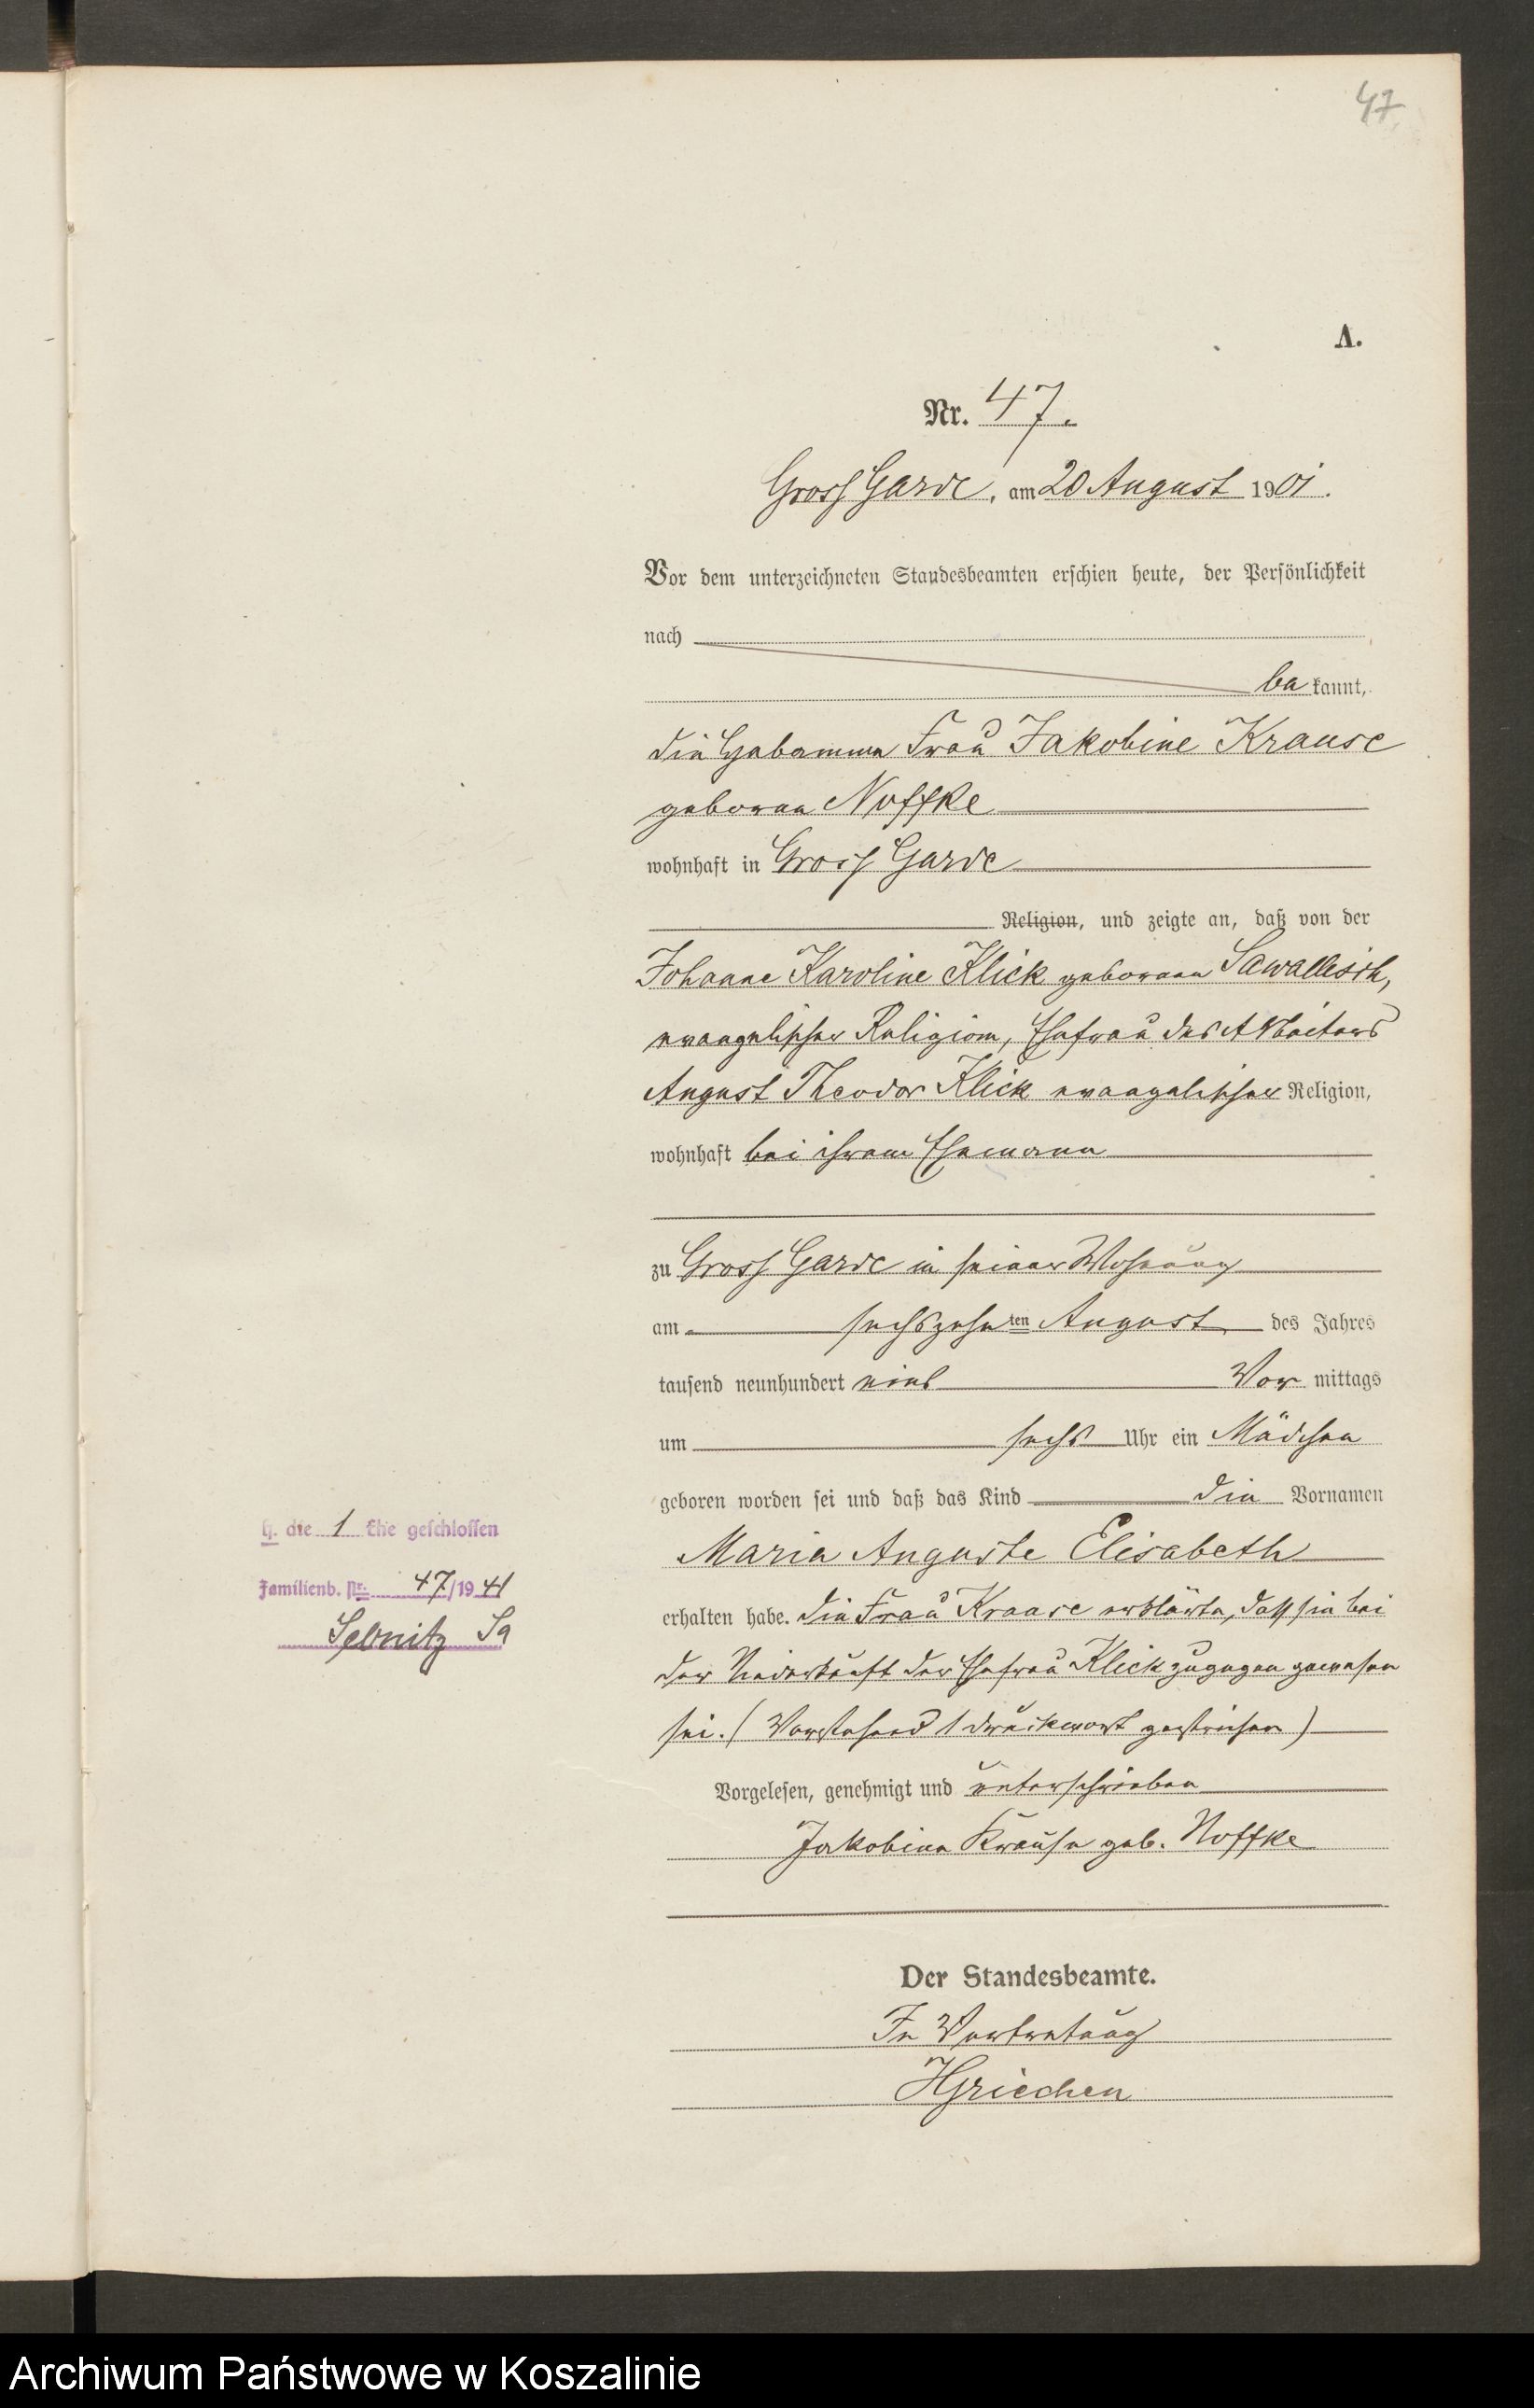 47
A.
Nr. 47.
Gross Garde, am 20 August 1901.
Vor dem unterzeichneten Standesbeamten erschien heute, der Persönlichkeit
nach
bekannt,
die Hebamme Frau Jakobine Krause
geborene Noffke
wohnhaft in Gross Garde
Religion, und zeigte an, daß von der
Johanne Karoline Klick geborenen Sawallisch,
evangelischer Religion, Ehefrau des Arbeiters
August Theodor Klick evangelischer Religion,
wohnhaft bei ihrem Ehemann
zu Gross Garde in seiner Wohnung
am sechszehnten August des Jahres
tausend neunhundert eins Vormittags
um sechs Uhr ein Mädchen
geboren worden sei und daß das Kind die Vornamen
Maria Auguste Elisabeth
erhalten habe. Die Frau Krause erklärte, daß sie bei
der Niederkunft der Ehefrau Klick zugegen gewesen
sei. (Vorstehend 1 Druckwort gestrichen)
Vorgelesen, genehmigt und unterschrieben
Jakobine Krause geb. Noffke
Der Standesbeamte.
In Vertretung
HGriechen
H. die 1 Ehe geschlossen
Familienb. Nr. 47/1941
Sebnitz Sa
Archiwum Państwowe w Koszalinie